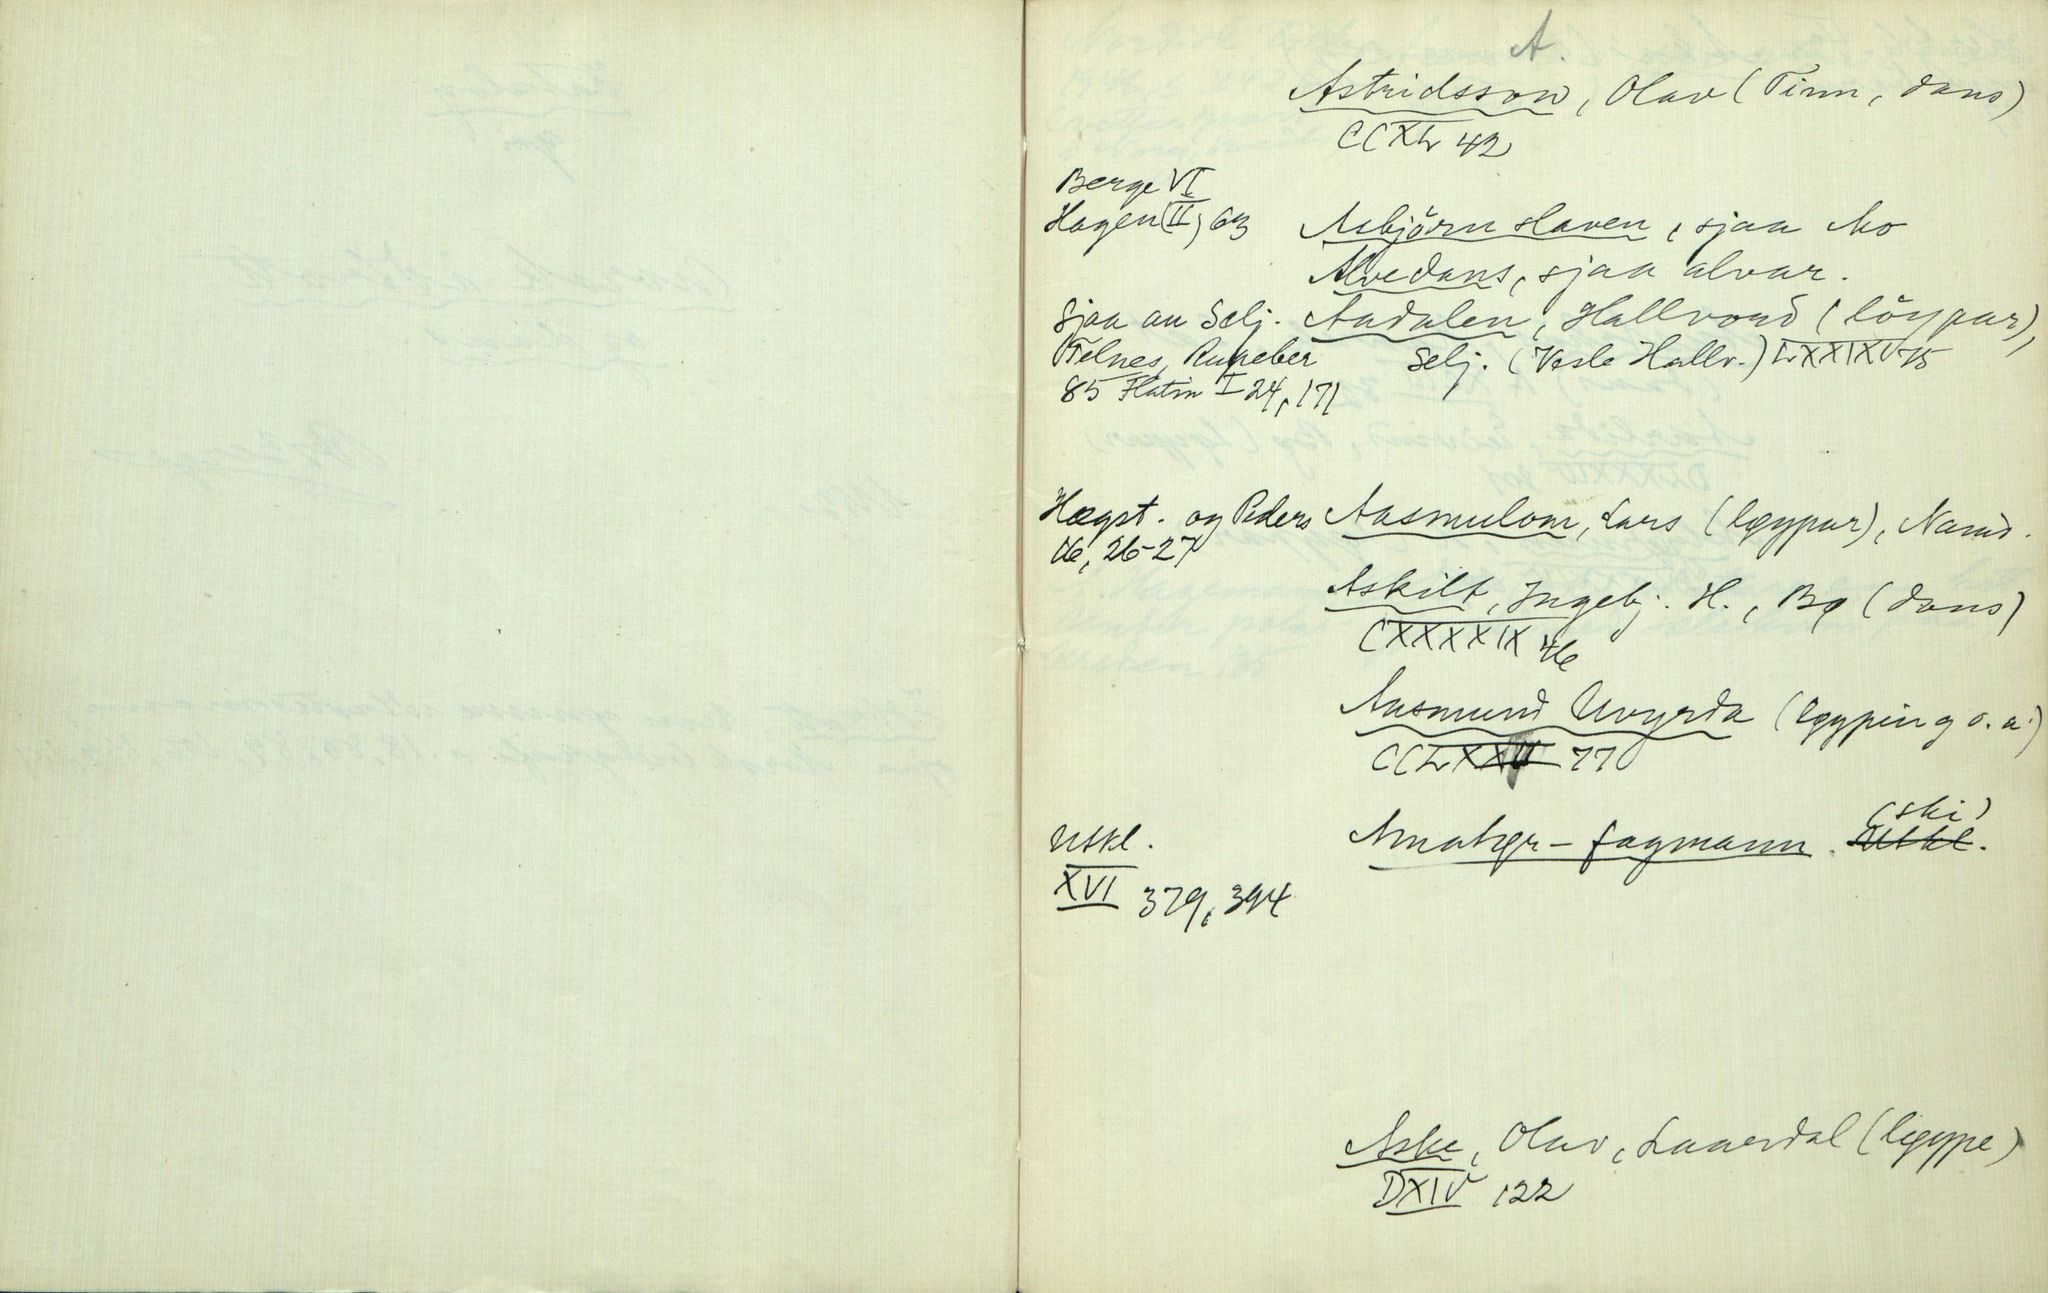 A.
Astridsson, Olav (Tinn, dans)
CCXL 42
Berge VI
Hagen (II) 63 Asbjörn slaven, sjaa Mo
Alvedans, sjaa alvar.
Sjaa au Selj. Aadalen, Hallvord (löypar),
Telnes, Rupeber Selj. (Vesle Hallv.) LXXIXV 75
85 Flatin I 24, 171
Hægst. og Peders Aasmulom, Lars (løypar), Namd.
16, 26-27
Askilt, Ingebj. H., Bø (dans)
CXXXXIX 46
Aasmund Uvyrda (løyping o. a.)
CCLXXV 770
Utkl. Amatør-fagmann. (ski) Utkl.
XVI 379, 394
Aske, Olav, Laardal (løype)
DXIV 122